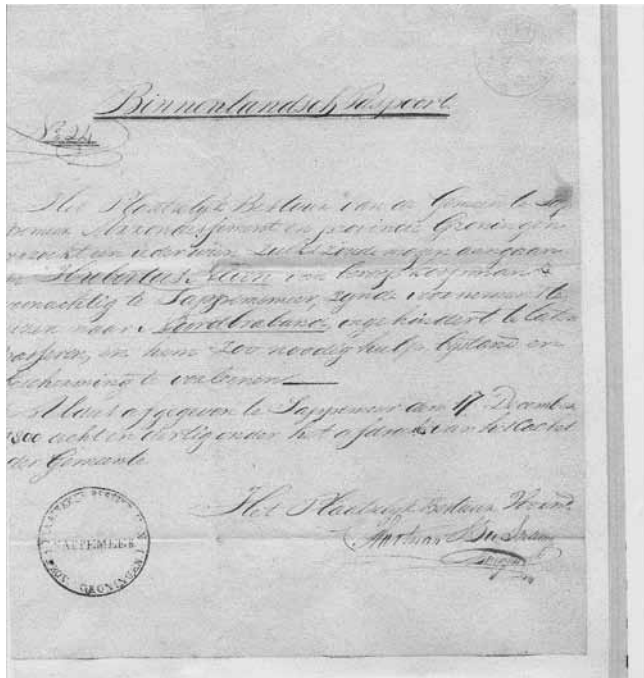 Binnenlandsch Paspoort.
No 24
Het Plaatselyk Bestuur van de Gemeente Sap
pemeer Arrondissement en provincie Groningen
verzoekt een ieder wien zulks zoude mogen aangaan
Hubertus van beroep koopman
woonachtig te Sappemeer, zynde voornemens te
reizen naar Noordbraband, ongehindert te laten
passeren, en hem zoo noodig hulp bystand en
bescherming te verleenen
Aldus afgegeven te Sappemeer den 17 December
1800 acht en dertig onder het afdruk van het Cachet
der Gemeente
Het Plaatselyk Bestuur Voornd.
SAPPEMEER
GRONINGEN